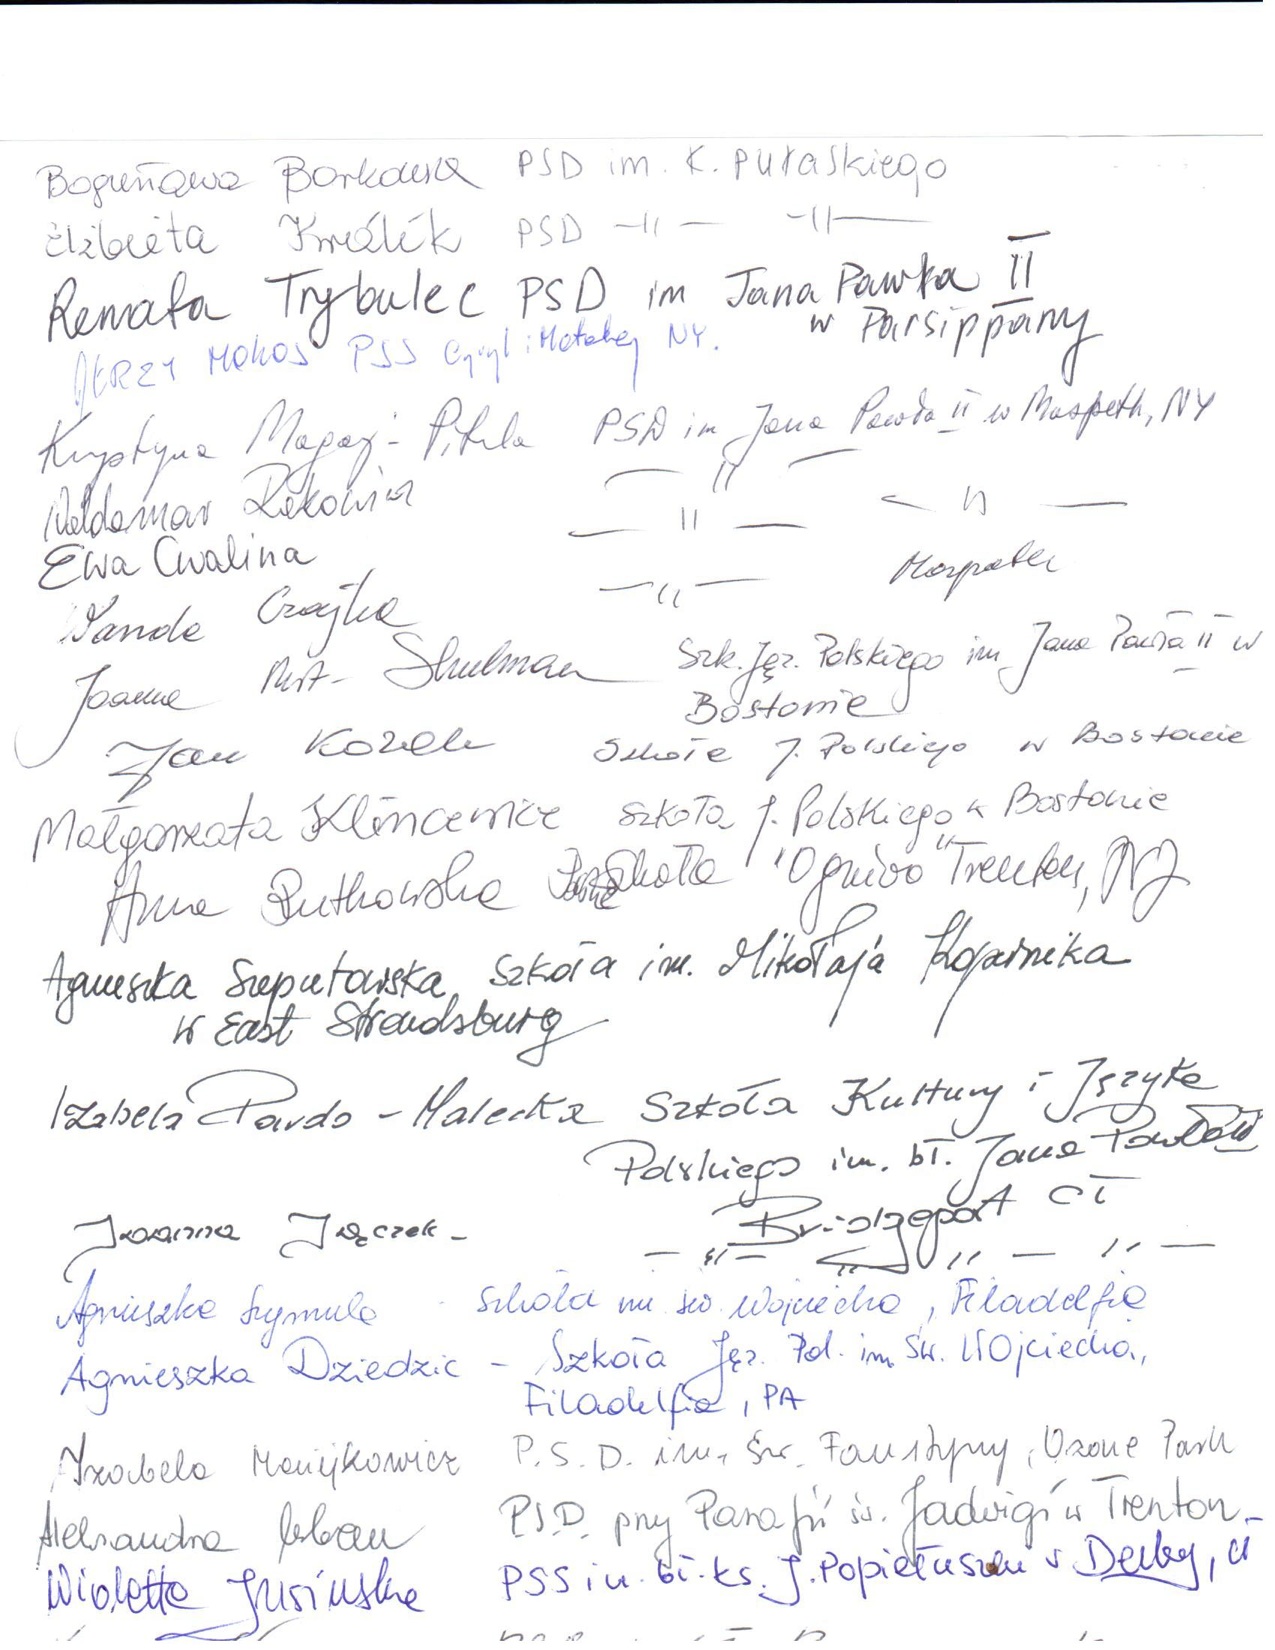 Bogusława Borkowska PSD im. K. Pułaskiego
Elżbieta Królik PSD -11- -11-
Renata Trybulec PSD im Jana Pawła II
w Parsippany
JERZY MOKOS PSS Cyryl i Metodeg NY.
Krystyna Magaj - Pitula PSD im Jana Pawła II w Maspeth, NY
Waldemar Rakowicz - 11 -
Ewa Cwalina - 11 - - 11 -
Wanda Czajka - 11 - Maspeth
Joanna Shulman Szk. Jęz. Polskiego im Jana Pawła II w
Bostonie
Jan Kozek Szkoła J. Polskiego w Bostonie
Małgorzata Klincewicz Szkoła J. Polskiego w Bostonie
Anna Rutkowska Szkoła "Ogniwo" Trenton, NJ
Agnieszka Szeputowska Szkoła im. Mikołaja Kopernika
w East Stroudsburg
Izabela Pardo - Malecka Szkoła Kultury i Języka
Polskiego im. bł. Jana Pawła II
Bridgeport CT
Joanna Jączek - - 11 - 11 - 11 -
Agnieszka Szymula - Szkoła im św. Wojciecha, Filadelfia
Agnieszka Dziedzic - Szkoła Jęz. Pol. im Św. Wojciecha,
Filadelfia, PA
Izabela P.S.D. im. Św. Faustyny, Ozone Park
Aleksandra Urban PSD. przy Parafii św. Jadwigi w Trenton
Wioletta Jusińska PSS im. bł. ks. J. Popiełuszki w Derby, CT